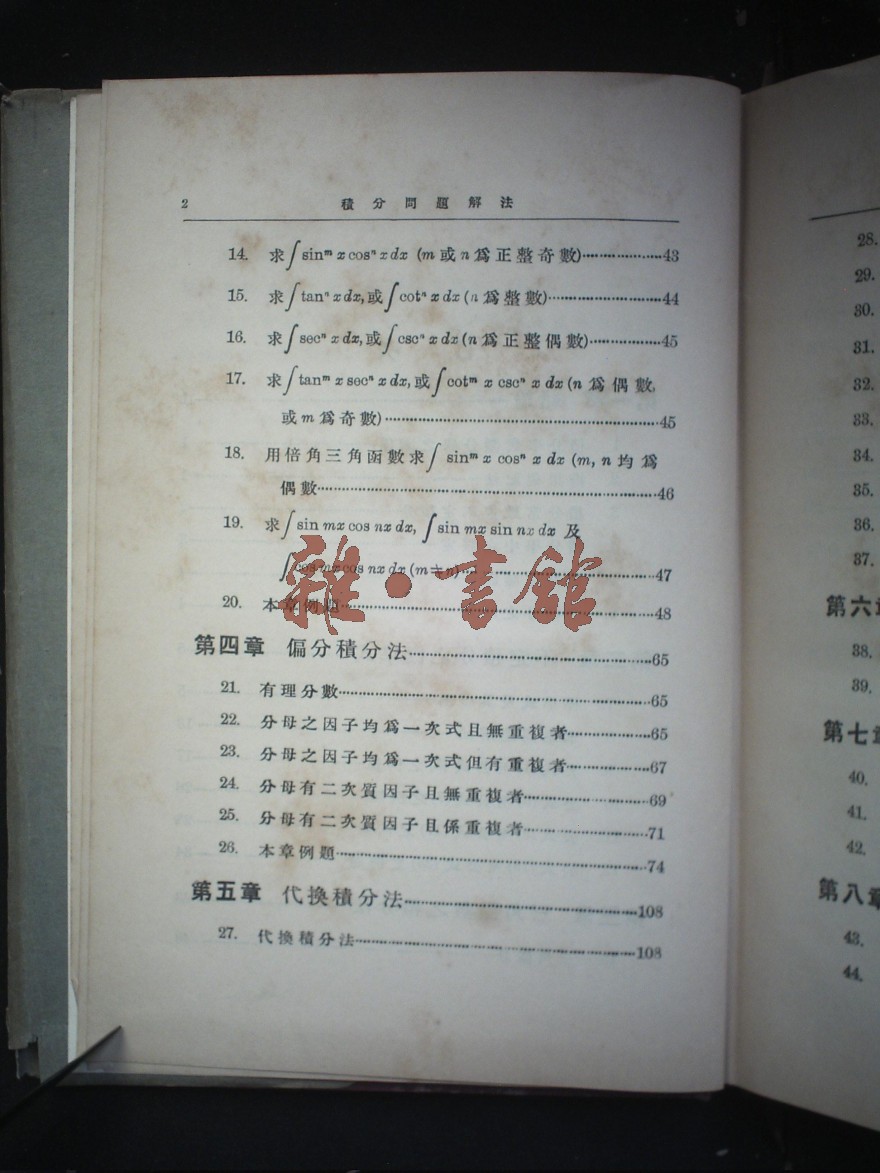 2 積分問題解法
14. 求∫sinᵐ x cosⁿ x dx (m 或 n 為正整奇數)··················43
15. 求∫tanⁿ x dx,或∫cotⁿ x dx (n 為整數)··················44
16. 求∫secⁿ x dx,或∫cscⁿ x dx (n 為正整偶數)··················45
17. 求∫tanᵐ x secⁿ x dx,或∫cotᵐ x cscⁿ x dx (n 為偶數,
或 m 為奇數)··················45
18. 用倍角三角函數求∫sinᵐ x cosⁿ x dx (m, n 均為
偶數··················46
19. 求∫sin mx cos nx dx, ∫sin mx sin nx dx 及
∫cos mx cos nx dx (m≠n)··················47
20. 本章例題··················48
雜·書館
第四章 偏分積分法··················65
21. 有理分數··················65
22. 分母之因子均為一次式且無重複者··················65
23. 分母之因子均為一次式但有重複者··················67
24. 分母有二次質因子且無重複者··················69
25. 分母有二次質因子且係重複者··················71
26. 本章例題··················74
第五章 代換積分法··················108
27. 代換積分法··················108
28.
29.
30.
31.
32.
33.
34.
35.
36.
37.
第六
38.
39.
第七章
40.
41.
42.
第八章
43.
44.